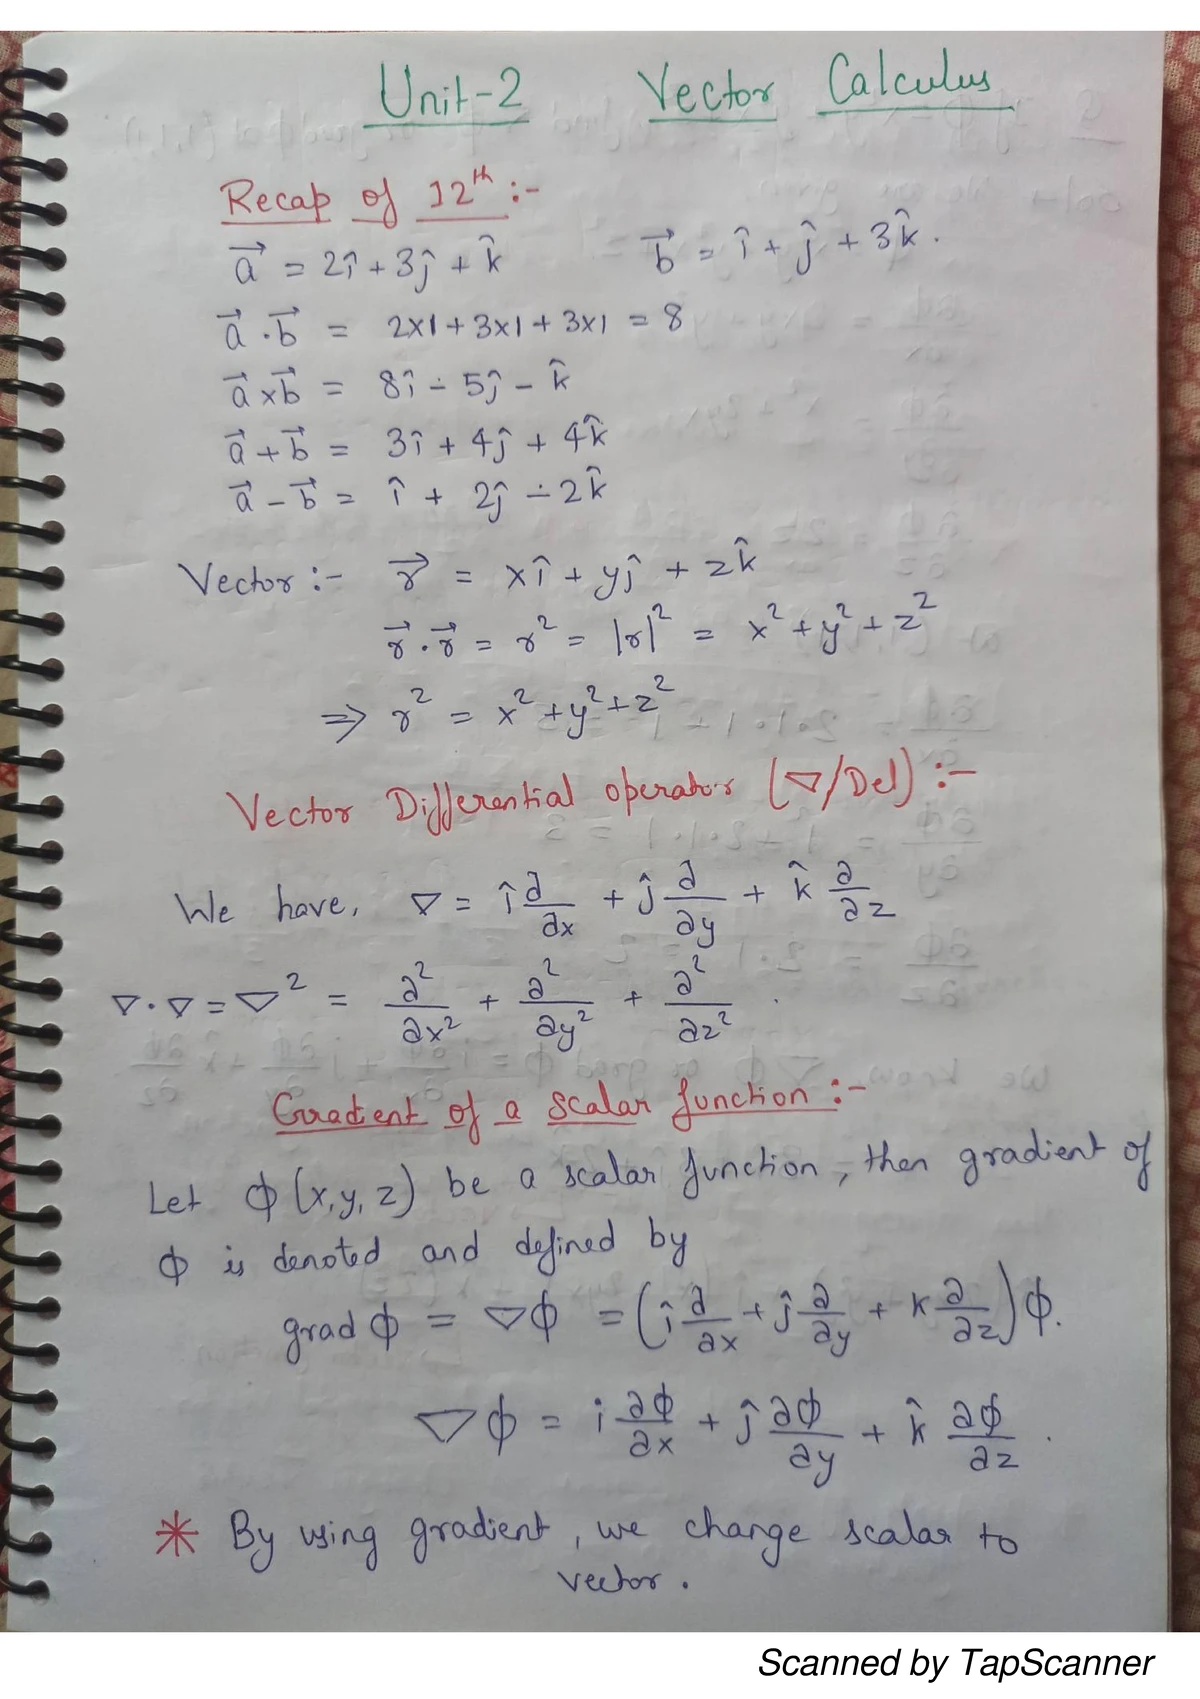 Unit-2 Vector Calculus
Recap of 12th :-
a⃗ = 2î + 3ĵ + k̂ b⃗ = î + ĵ + 3k̂ .
a⃗ · b⃗ = 2x1 + 3x1 + 3x1 = 8
a⃗ x b⃗ = 8î - 5ĵ - k̂
a⃗ + b⃗ = 3î + 4ĵ + 4k̂
a⃗ - b⃗ = î + 2ĵ - 2k̂
Vector :- r⃗ = xî + yĵ + zk̂
r⃗ · r⃗ = r² = |r|² = x² + y² + z²
⇒ r² = x² + y² + z²
Vector Differential operator (∇/Del) :-
We have, ∇ = î ∂/∂x + ĵ ∂/∂y + k̂ ∂/∂z
∇ · ∇ = ∇² = ∂²/∂x² + ∂²/∂y² + ∂²/∂z² .
Gradient of a scalar function :-
Let ϕ (x, y, z) be a scalar function, then gradient of
ϕ is denoted and defined by
grad ϕ = ∇ϕ = (î ∂/∂x + ĵ ∂/∂y + k ∂/∂z) ϕ.
∇ϕ = i ∂ϕ/∂x + ĵ ∂ϕ/∂y + k̂ ∂ϕ/∂z .
* By using gradient, we change scalar to
vector .
Scanned by TapScanner